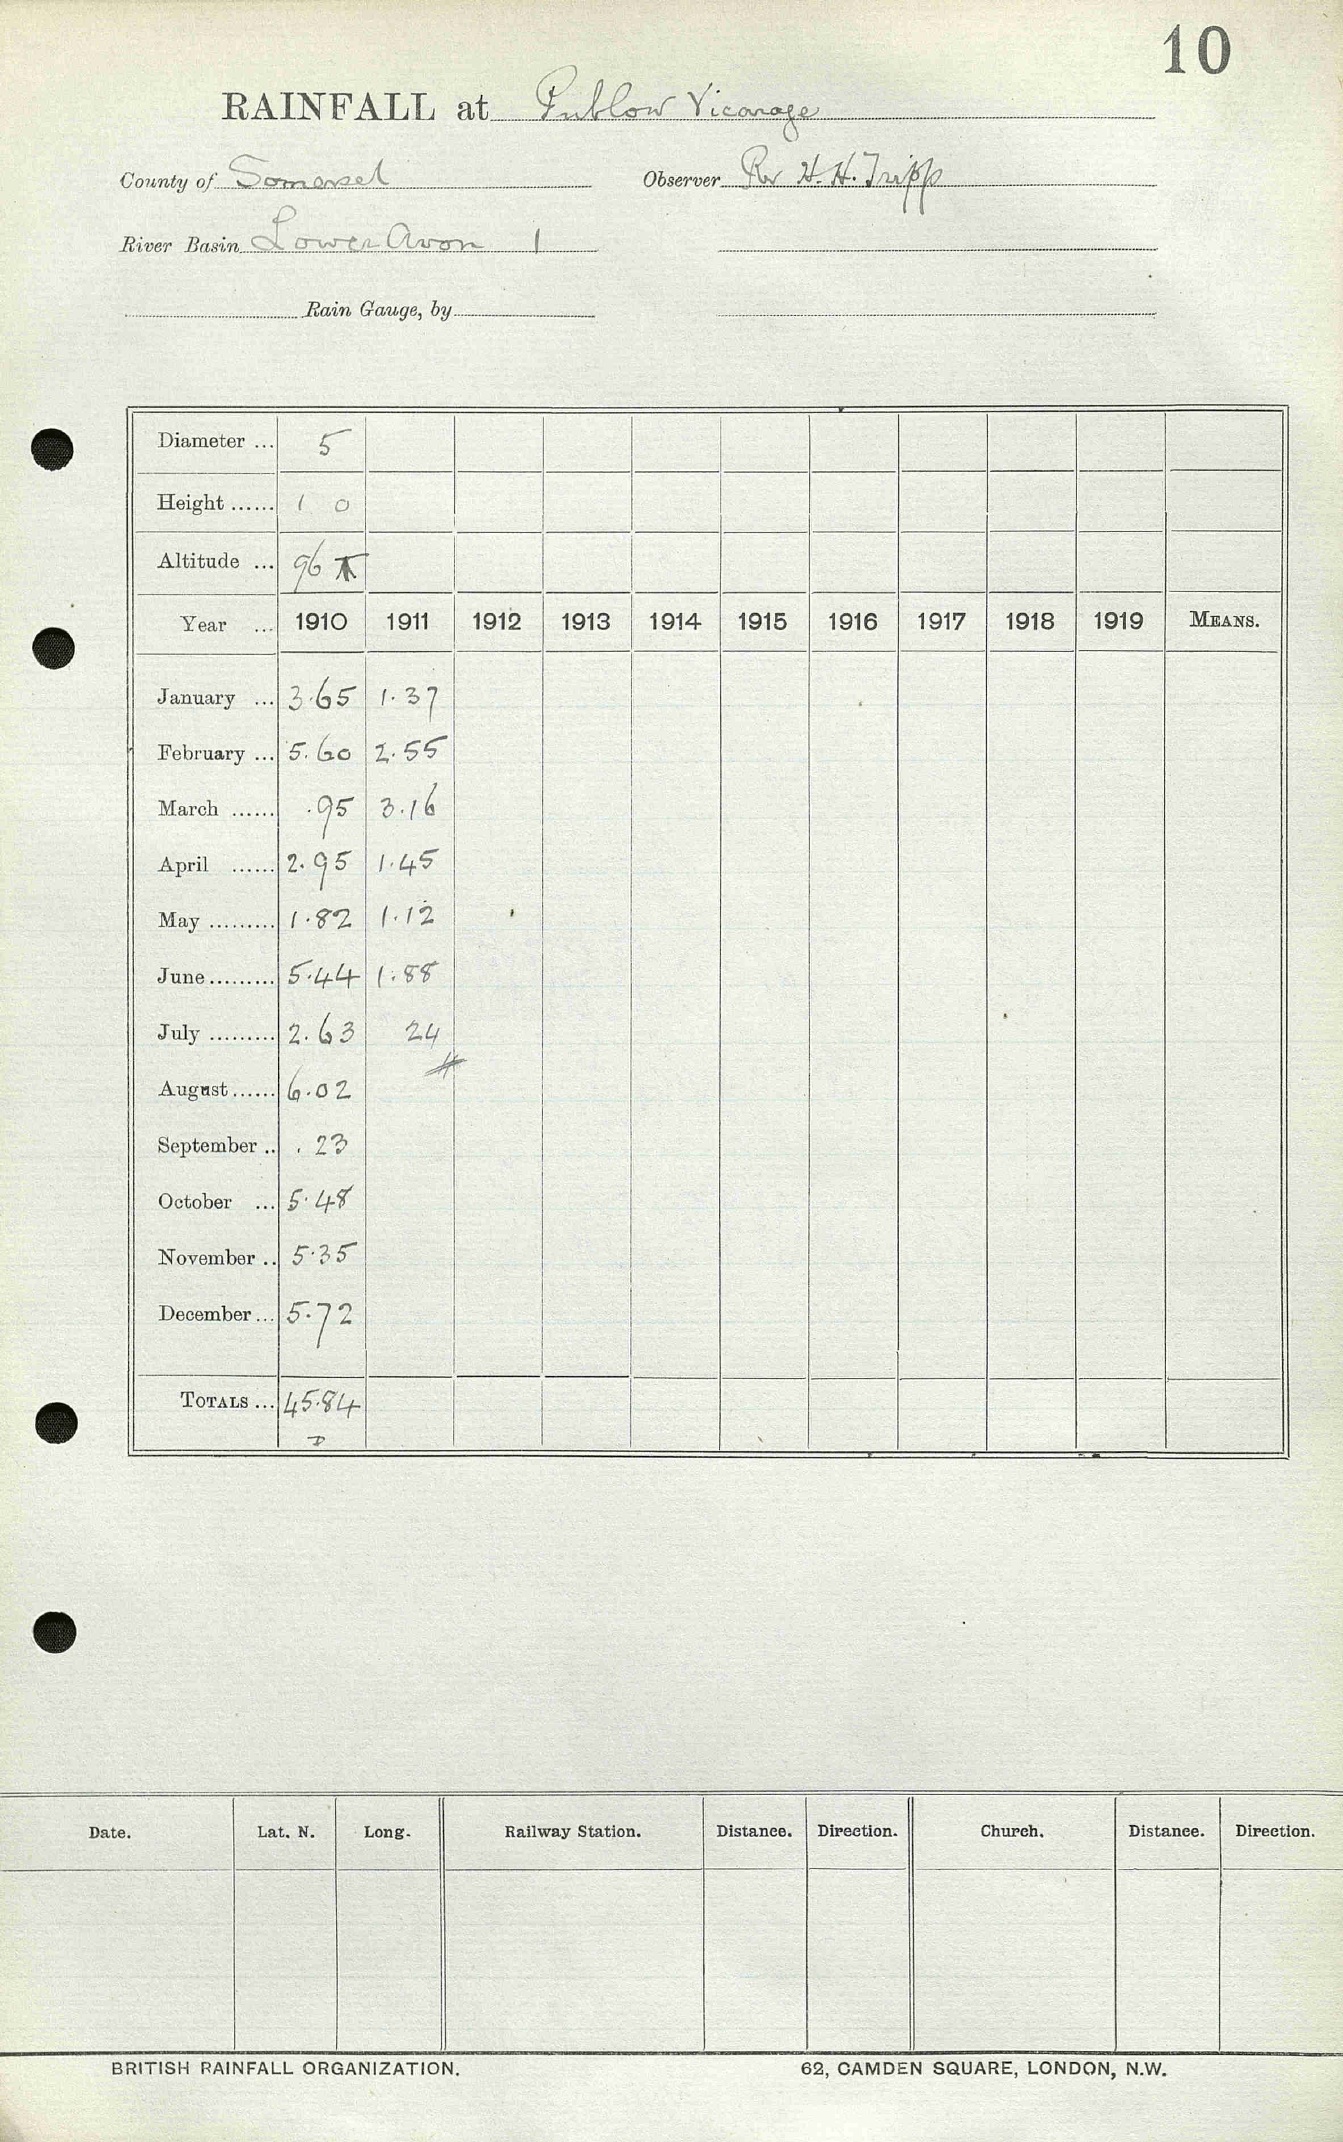 10
RAINFALL at Publow Vicarage
County of Somerset Observer Rev H. H. Tripp
River Basin Lower Avon 1
Rain Gauge, by
Diameter ... 5
Height ...... 1 0
Altitude ... 96
Year ... 1910 1911 1912 1913 1914 1915 1916 1917 1918 1919 MEANS.
January ... 3.65 1.37
February ... 5.60 2.55
March ...... .95 3.16
April ...... 2.95 1.45
May ......... 1.82 1.12
June ......... 5.44 1.88
July ......... 2.63 24
August ...... 6.02
September .. .23
October ... 5.48
November .. 5.35
December ... 5.72
TOTALS ... 45.84
D
Date. Lat. N. Long. Railway Station. Distance. Direction. Church. Distance. Direction.
BRITISH RAINFALL ORGANIZATION. 62, CAMDEN SQUARE, LONDON, N.W.